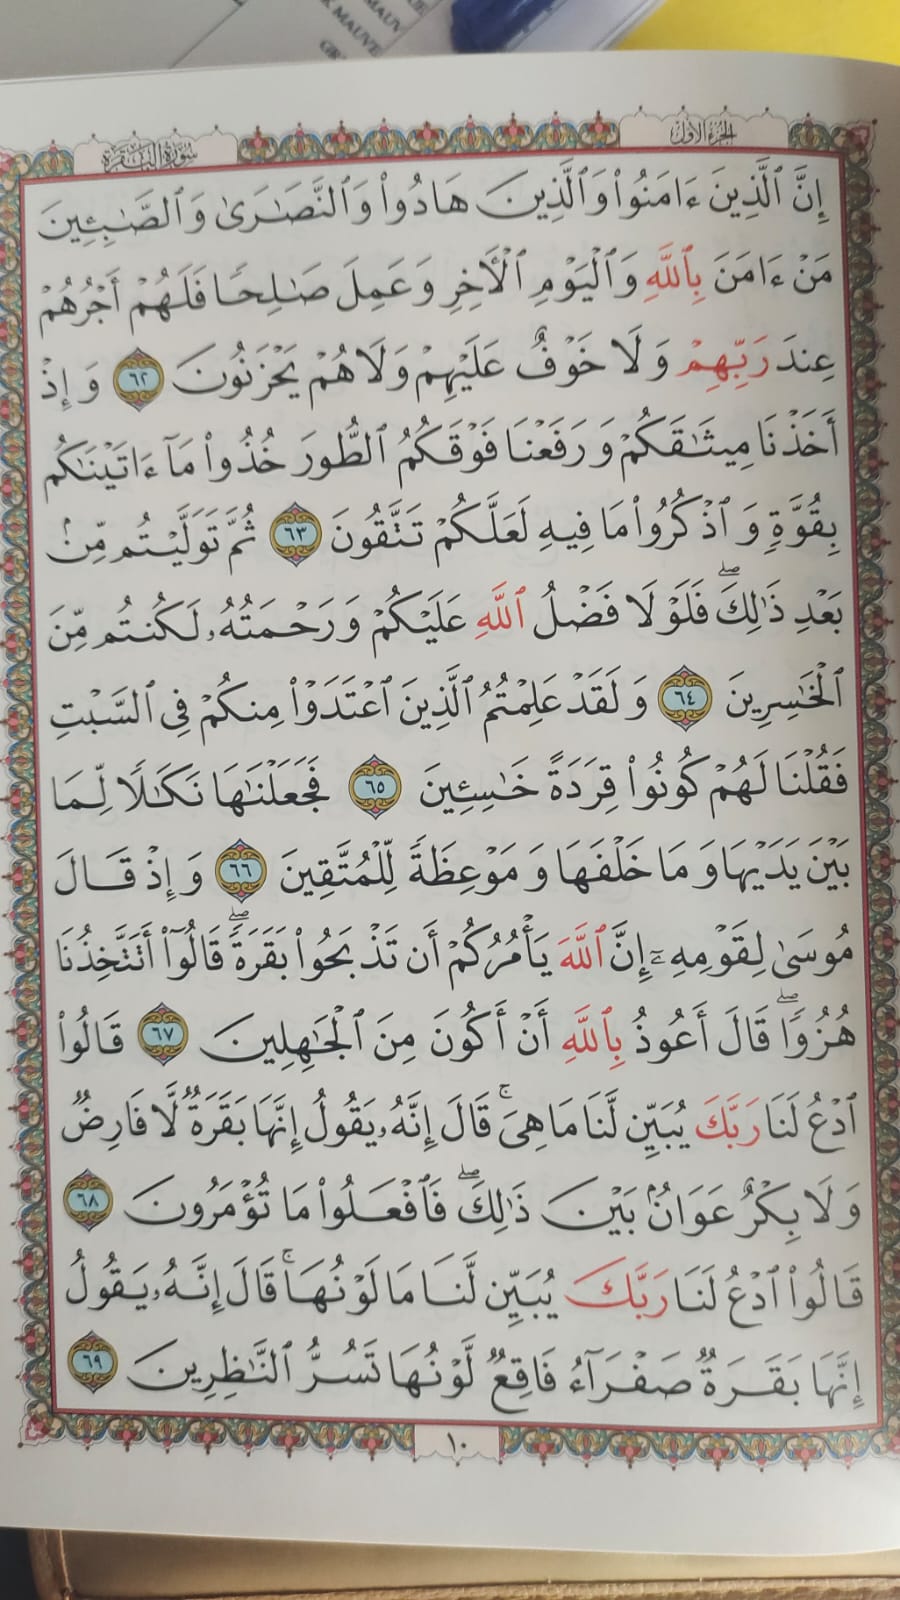 MAUV
MAUVE
الجزء الأول
سورة البقرة
إِنَّ ٱلَّذِينَ ءَامَنُوا۟ وَٱلَّذِينَ هَادُوا۟ وَٱلنَّصَـٰرَىٰ وَٱلصَّـٰبِـِٔينَ
مَنْ ءَامَنَ بِٱللَّهِ وَٱلْيَوْمِ ٱلْـَٔاخِرِ وَعَمِلَ صَـٰلِحًا فَلَهُمْ أَجْرُهُمْ
عِندَ رَبِّهِمْ وَلَا خَوْفٌ عَلَيْهِمْ وَلَا هُمْ يَحْزَنُونَ ٦٢ وَإِذْ
أَخَذْنَا مِيثَـٰقَكُمْ وَرَفَعْنَا فَوْقَكُمُ ٱلطُّورَ خُذُوا۟ مَآ ءَاتَيْنَـٰكُم
بِقُوَّةٍ وَٱذْكُرُوا۟ مَا فِيهِ لَعَلَّكُمْ تَتَّقُونَ ٦٣ ثُمَّ تَوَلَّيْتُم مِّنۢ
بَعْدِ ذَٰلِكَ ۖ فَلَوْلَا فَضْلُ ٱللَّهِ عَلَيْكُمْ وَرَحْمَتُهُۥ لَكُنتُم مِّنَ
ٱلْخَـٰسِرِينَ ٦٤ وَلَقَدْ عَلِمْتُمُ ٱلَّذِينَ ٱعْتَدَوْا۟ مِنكُمْ فِى ٱلسَّبْتِ
فَقُلْنَا لَهُمْ كُونُوا۟ قِرَدَةً خَـٰسِـِٔينَ ٦٥ فَجَعَلْنَـٰهَا نَكَـٰلًا لِّمَا
بَيْنَ يَدَيْهَا وَمَا خَلْفَهَا وَمَوْعِظَةً لِّلْمُتَّقِينَ ٦٦ وَإِذْ قَالَ
مُوسَىٰ لِقَوْمِهِۦٓ إِنَّ ٱللَّهَ يَأْمُرُكُمْ أَن تَذْبَحُوا۟ بَقَرَةً ۖ قَالُوٓا۟ أَتَتَّخِذُنَا
هُزُوًا ۖ قَالَ أَعُوذُ بِٱللَّهِ أَنْ أَكُونَ مِنَ ٱلْجَـٰهِلِينَ ٦٧ قَالُوا۟
ٱدْعُ لَنَا رَبَّكَ يُبَيِّن لَّنَا مَا هِىَ ۚ قَالَ إِنَّهُۥ يَقُولُ إِنَّهَا بَقَرَةٌ لَّا فَارِضٌ
وَلَا بِكْرٌ عَوَانٌۢ بَيْنَ ذَٰلِكَ ۖ فَٱفْعَلُوا۟ مَا تُؤْمَرُونَ ٦٨
قَالُوا۟ ٱدْعُ لَنَا رَبَّكَ يُبَيِّن لَّنَا مَا لَوْنُهَا ۚ قَالَ إِنَّهُۥ يَقُولُ
إِنَّهَا بَقَرَةٌ صَفْرَآءُ فَاقِعٌ لَّوْنُهَا تَسُرُّ ٱلنَّـٰظِرِينَ ٦٩
١٠